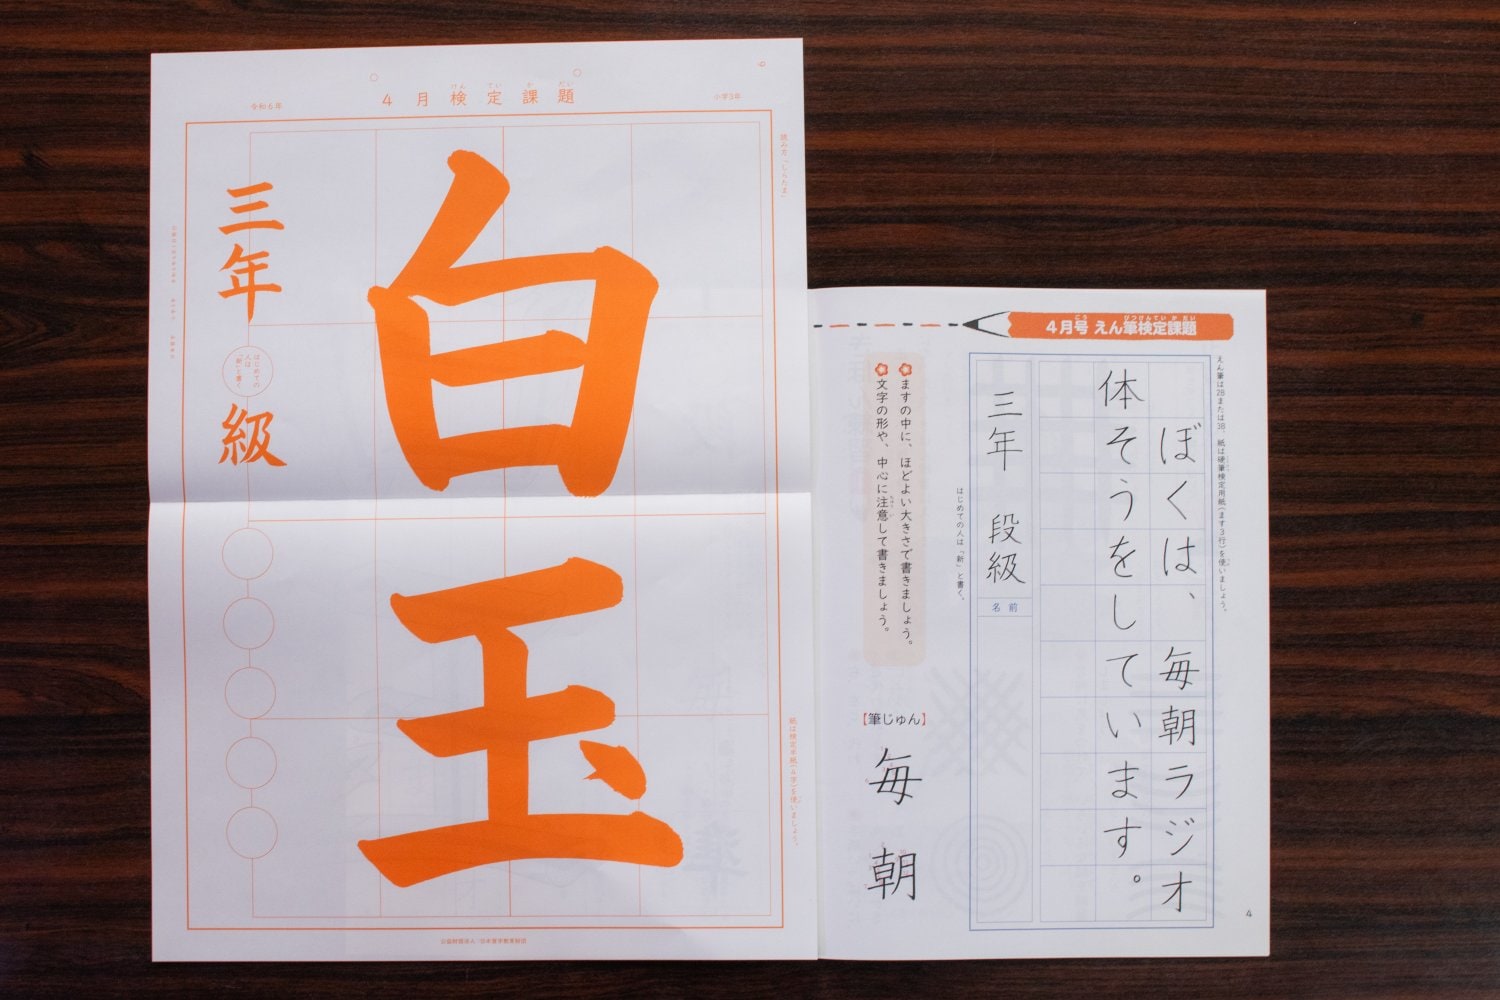 4月検定課題
けんていかだい
令和6年
小学3年
6
読み方「しらたま」
白玉
三年
はじめての
人は
「新」と書く
級
紙は検定半紙(4字)を使いましょう。
公益財団法人 日本習字教育財団
4月号 えん筆検定課題
ごう ぴつけんてい か だい
えん筆は2Bまたは3B、紙は硬筆検定用紙(ます3行)を使いましょう。
ぼくは、毎朝ラジオ
体そうをしています。
三年 段級
名前
はじめての人は「新」と書く。
ますの中に、ほどよい大きさで書きましょう。
文字の形や、中心に注意して書きましょう。
【筆じゅん】
毎
朝
4